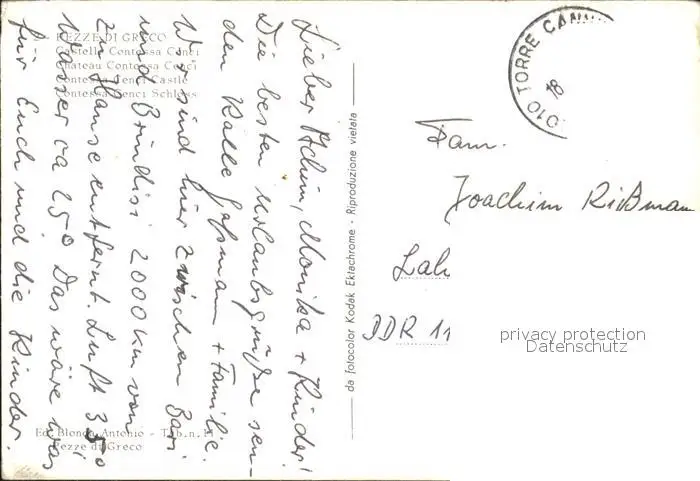 PEZZE DI GRECO
Castello Contessa Cenci
Château Contessa Cenci
Contessa Cenci Castle
Contessa Cenci Schloss
Lieber Achim, Monika + Kinder!
Die besten Urlaubsgrüße sen-
den Kalle + Familie.
Wir sind hier zwischen Bari
und Brindisi 2000 km von
zu Hause entfernt. Luft 35°
Wasser ca 25° Das wäre was
für Euch und die Kinder.
Ed. Blonda Antonio - Tab. n. 11
Pezze di Greco
da fotocolor Kodak Ektachrome - Riproduzione vietata
010 TORRE CANN
18
Fam.
Joachim Rißmann
Lah
DDR 11
privacy protection
Datenschutz